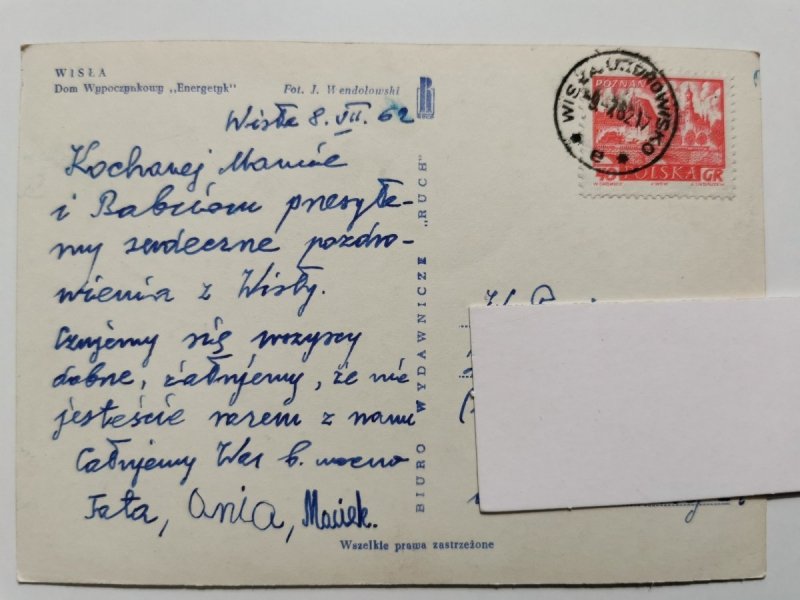 WISŁA
Dom Wypoczynkowy „Energetyk" Fot. J. Wendołowski
Wisła 8. VII. 62
Kochanej Mamie
i Babciom przesyła-
my serdeczne pozdro-
wienia z Wisły.
Czujemy się wszyscy
dobrze, żałujemy, że nie
jesteście razem z nami
Całujemy Was b. mocno
Tata, Ania, Maciek.
BIURO WYDAWNICZE „RUCH"
Wszelkie prawa zastrzeżone
WISŁA UZDROWISKO
a
POZNAŃ
40 POLSKA GR